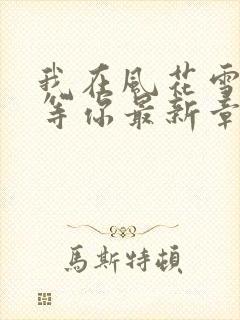 我在風花雪
等你最新章
馬斯特頓